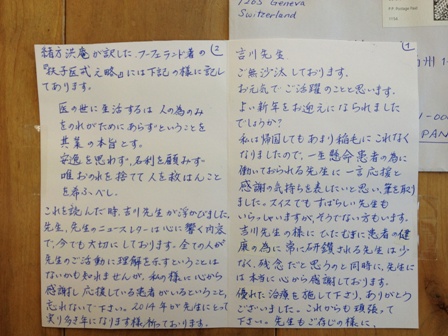 ①
吉川先生
ご無沙汰しております。
お元気でご活躍のことと思います。
よい新年をお迎えになられました
でしょうか？
私は帰国してもあまり稲毛にこれなく
なりましたので、一生懸命患者の為に
働いておられる先生に一言応援と
感謝の気持ちを表したいと思い、筆を取り
ました。スイスでもすばらしい先生も
いらっしゃいますが、そうでない方もいます。
吉川先生の様にひたむきに患者の健
康の為に常に研鑽される先生は少
なく、残念だと思うのと同時に、先生に
は本当に心から感謝しております。
優れた治療を施して下さり、ありがとう
ございました。これからも頑張って
下さい。先生もご存じの様に、
②
緒方洪庵が訳した、フーフェランド著の
『扶子医戒之略』には下記の様に記し
てあります。
医の世に生活するは 人の為のみ
をのれがためにあらずということを
其業の本旨とす。
安逸を思わず、名利を顧みず
唯おのれを捨てて人を救はんこと
を希ふべし。
これを読んだ時、吉川先生が浮かびました。
先生、先生のニュースレターは心に響く内容
で、今でも大切にしております。全ての人が
先生のご活動に理解を示すということは
ないかも知れませんが、私の様に心から
感謝し応援している患者がいるということ、
忘れないで下さい。2014年が先生にとって
実り多き年になります様、祈っております。
1203 Geneva
Switzerland
PAN